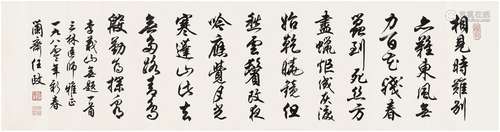 相見時難別
亦難東風無
力百花殘春
蠶到死絲方
盡蠟炬成灰淚
始乾曉鏡但
愁雲鬢改夜
吟應覺月光
寒蓬山此去
無多路青鳥
殷勤為探看
李義山無題一首
三林医師雅正
一九八〇年新春
蘭齋任政